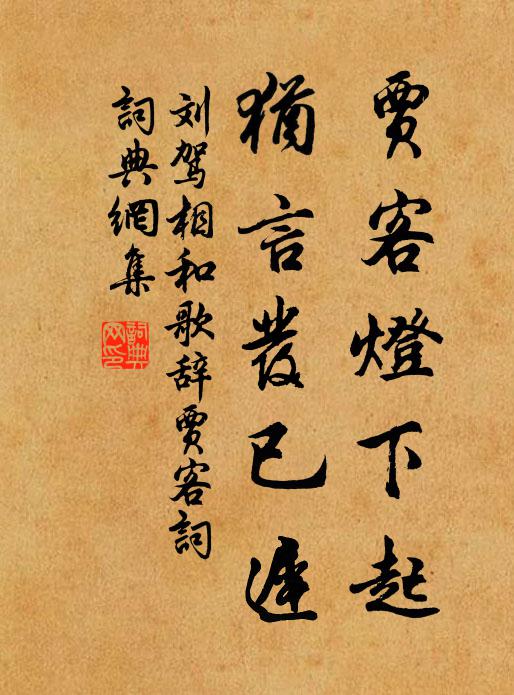 賈客燈下起
猶言發已遲
刘駕相和歌辞賈客詞
詞典網集
詞典网印